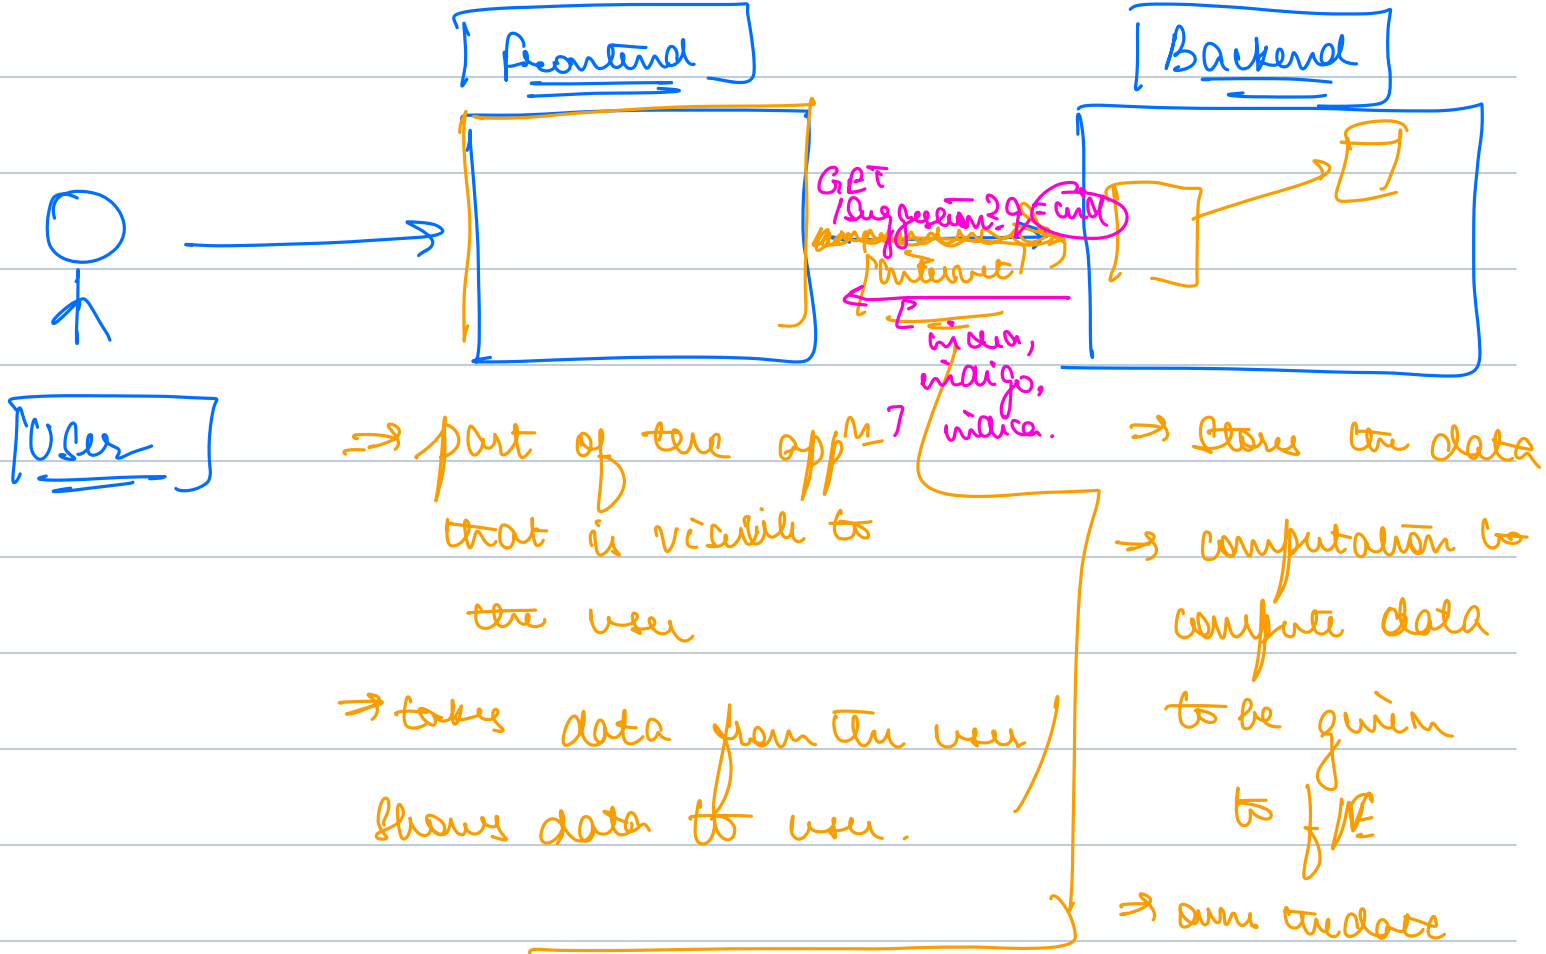 Frontend
Backend
GET
/suggestion?q=ind
Internet
[
india,
indigo,
] indica.
User
⇒ part of the appⁿ
that is visible to
the user
⇒ takes data from the user /
shows data to user.
⇒ Stores the data
⇒ computation to
compute data
to be given
to f/E
⇒ owns the data